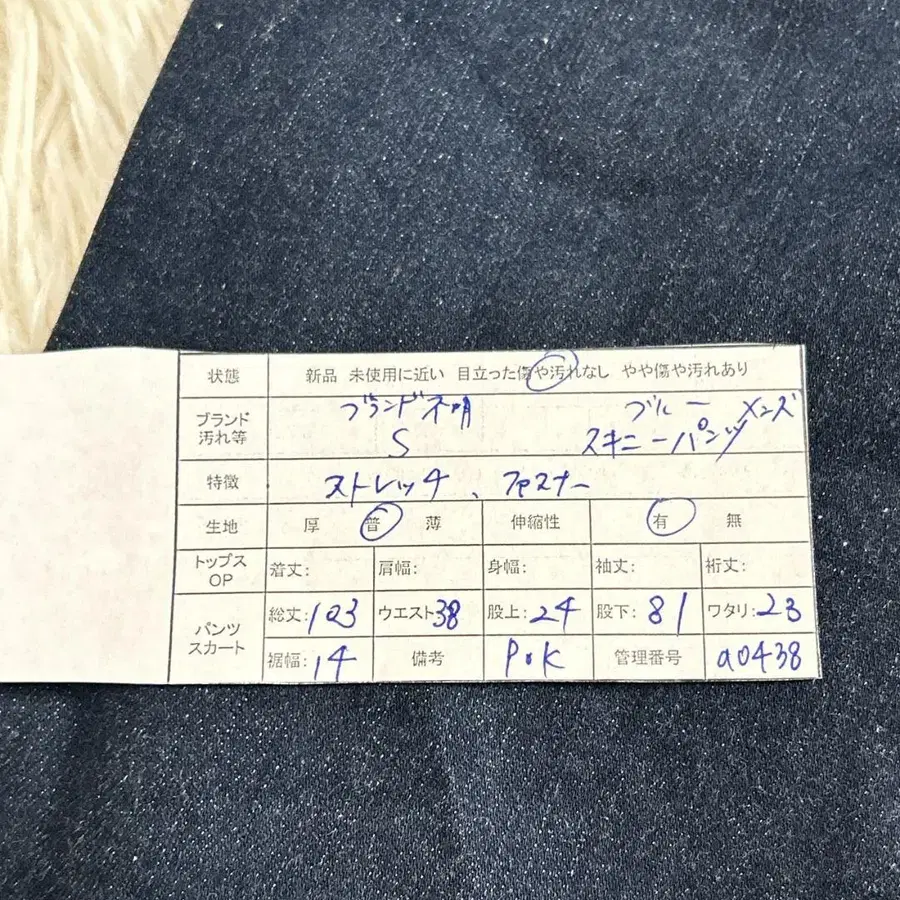 状態 新品 未使用に近い 目立った傷や汚れなし やや傷や汚れあり
ブランド 汚れ等 ブランド不明 S ブルー メンズ スキニーパンツ
特徴 ストレッチ、ファスナー
生地 厚 普 薄 伸縮性 有 無
トップス OP 着丈: 肩幅: 身幅: 袖丈: 裄丈:
パンツ スカート 総丈:103 ウエスト38 股上:24 股下:81 ワタリ:23
裾幅:14 備考 P.K 管理番号 a0438